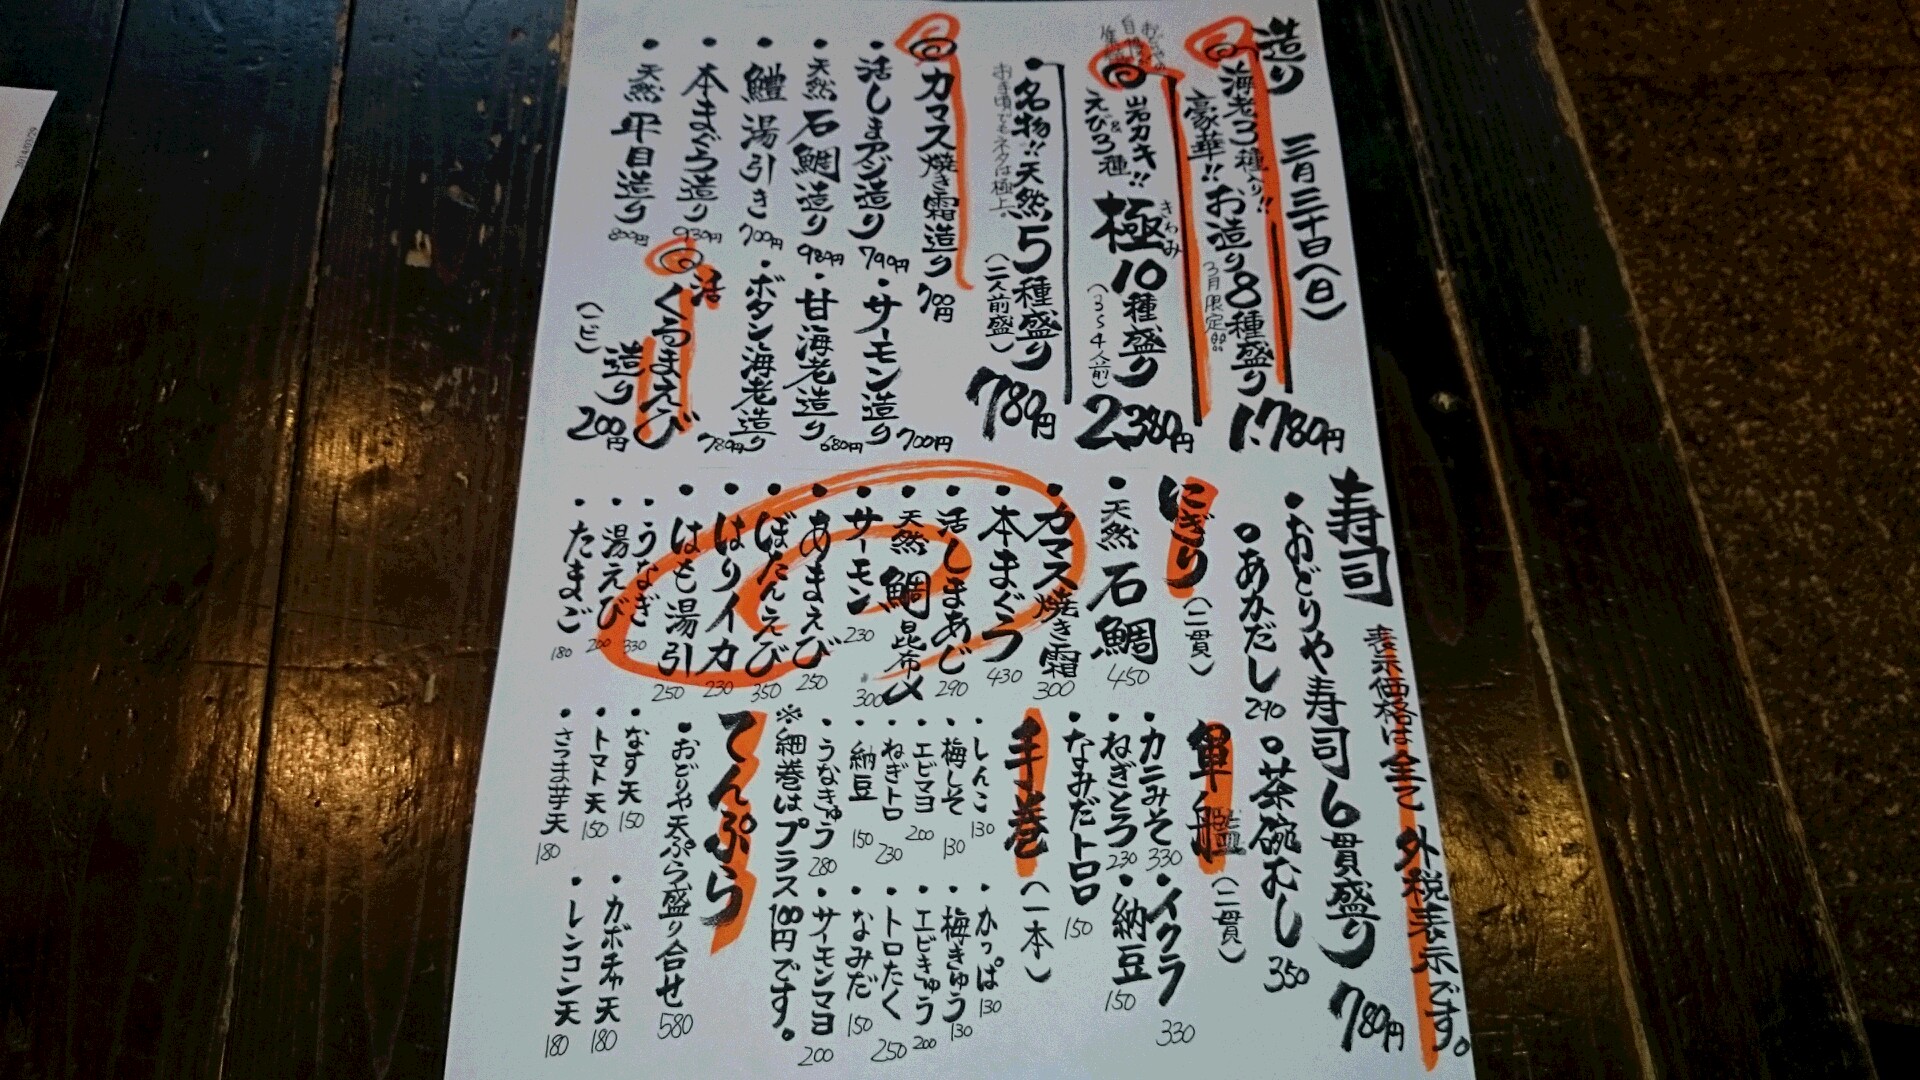 造り 三月三十日(日)
海老3種入り!!
豪華!! お造り8種盛り 1.780円
3月限定
岩カキ!!
&
えび3種
極10種盛り 2380円
きわみ
(3~4人前)
名物!! 天然5種盛り 789円
お手頃でもネタは極上。
(二人前盛)
カマス焼き霜造り 700円
・活しまアジ造り 790円
・サーモン造り 700円
・天然石鯛造り 980円
・甘海老造り 680円
・鱧湯引き 700円
・ボタン海老造り 780円
・本まぐろ造り 930円
活くるまえび
造り 200円
(一ピ)
・天然平目造り 800円
寿司 表示価格は全て外税表示です。
・おどりや寿司6貫盛り 780円
○あかだし 290
○茶碗むし 350
にぎり(二貫)
・天然石鯛 450
・カマス焼き霜 300
・本まぐろ 430
・活しまあじ 290
・天然鯛昆布〆 300
・サーモン 230
・あまえび 250
・ぼたんえび 350
・はりイカ 230
・はも湯引 250
・うなぎ 330
・湯えび 200
・たまご 180
軍艦(二貫)
・カニみそ 330
・イクラ 330
・ねぎとろ 230
・納豆 150
・なみだトロロ 150
手巻(一本)
・しんこ 130
・かっぱ 130
・梅しそ 130
・梅きゅう 130
・エビマヨ 200
・エビきゅう 200
・ねぎトロ 230
・トロたく 250
・納豆 150
・なみだ 150
・うなきゅう 280
・サーモンマヨ 200
※細巻はプラス100円です。
てんぷら
・おどりや天ぷら盛り合せ 580
・なす天 150
・カボチャ天 180
・トマト天 150
・レンコン天 180
・さつま芋天 180